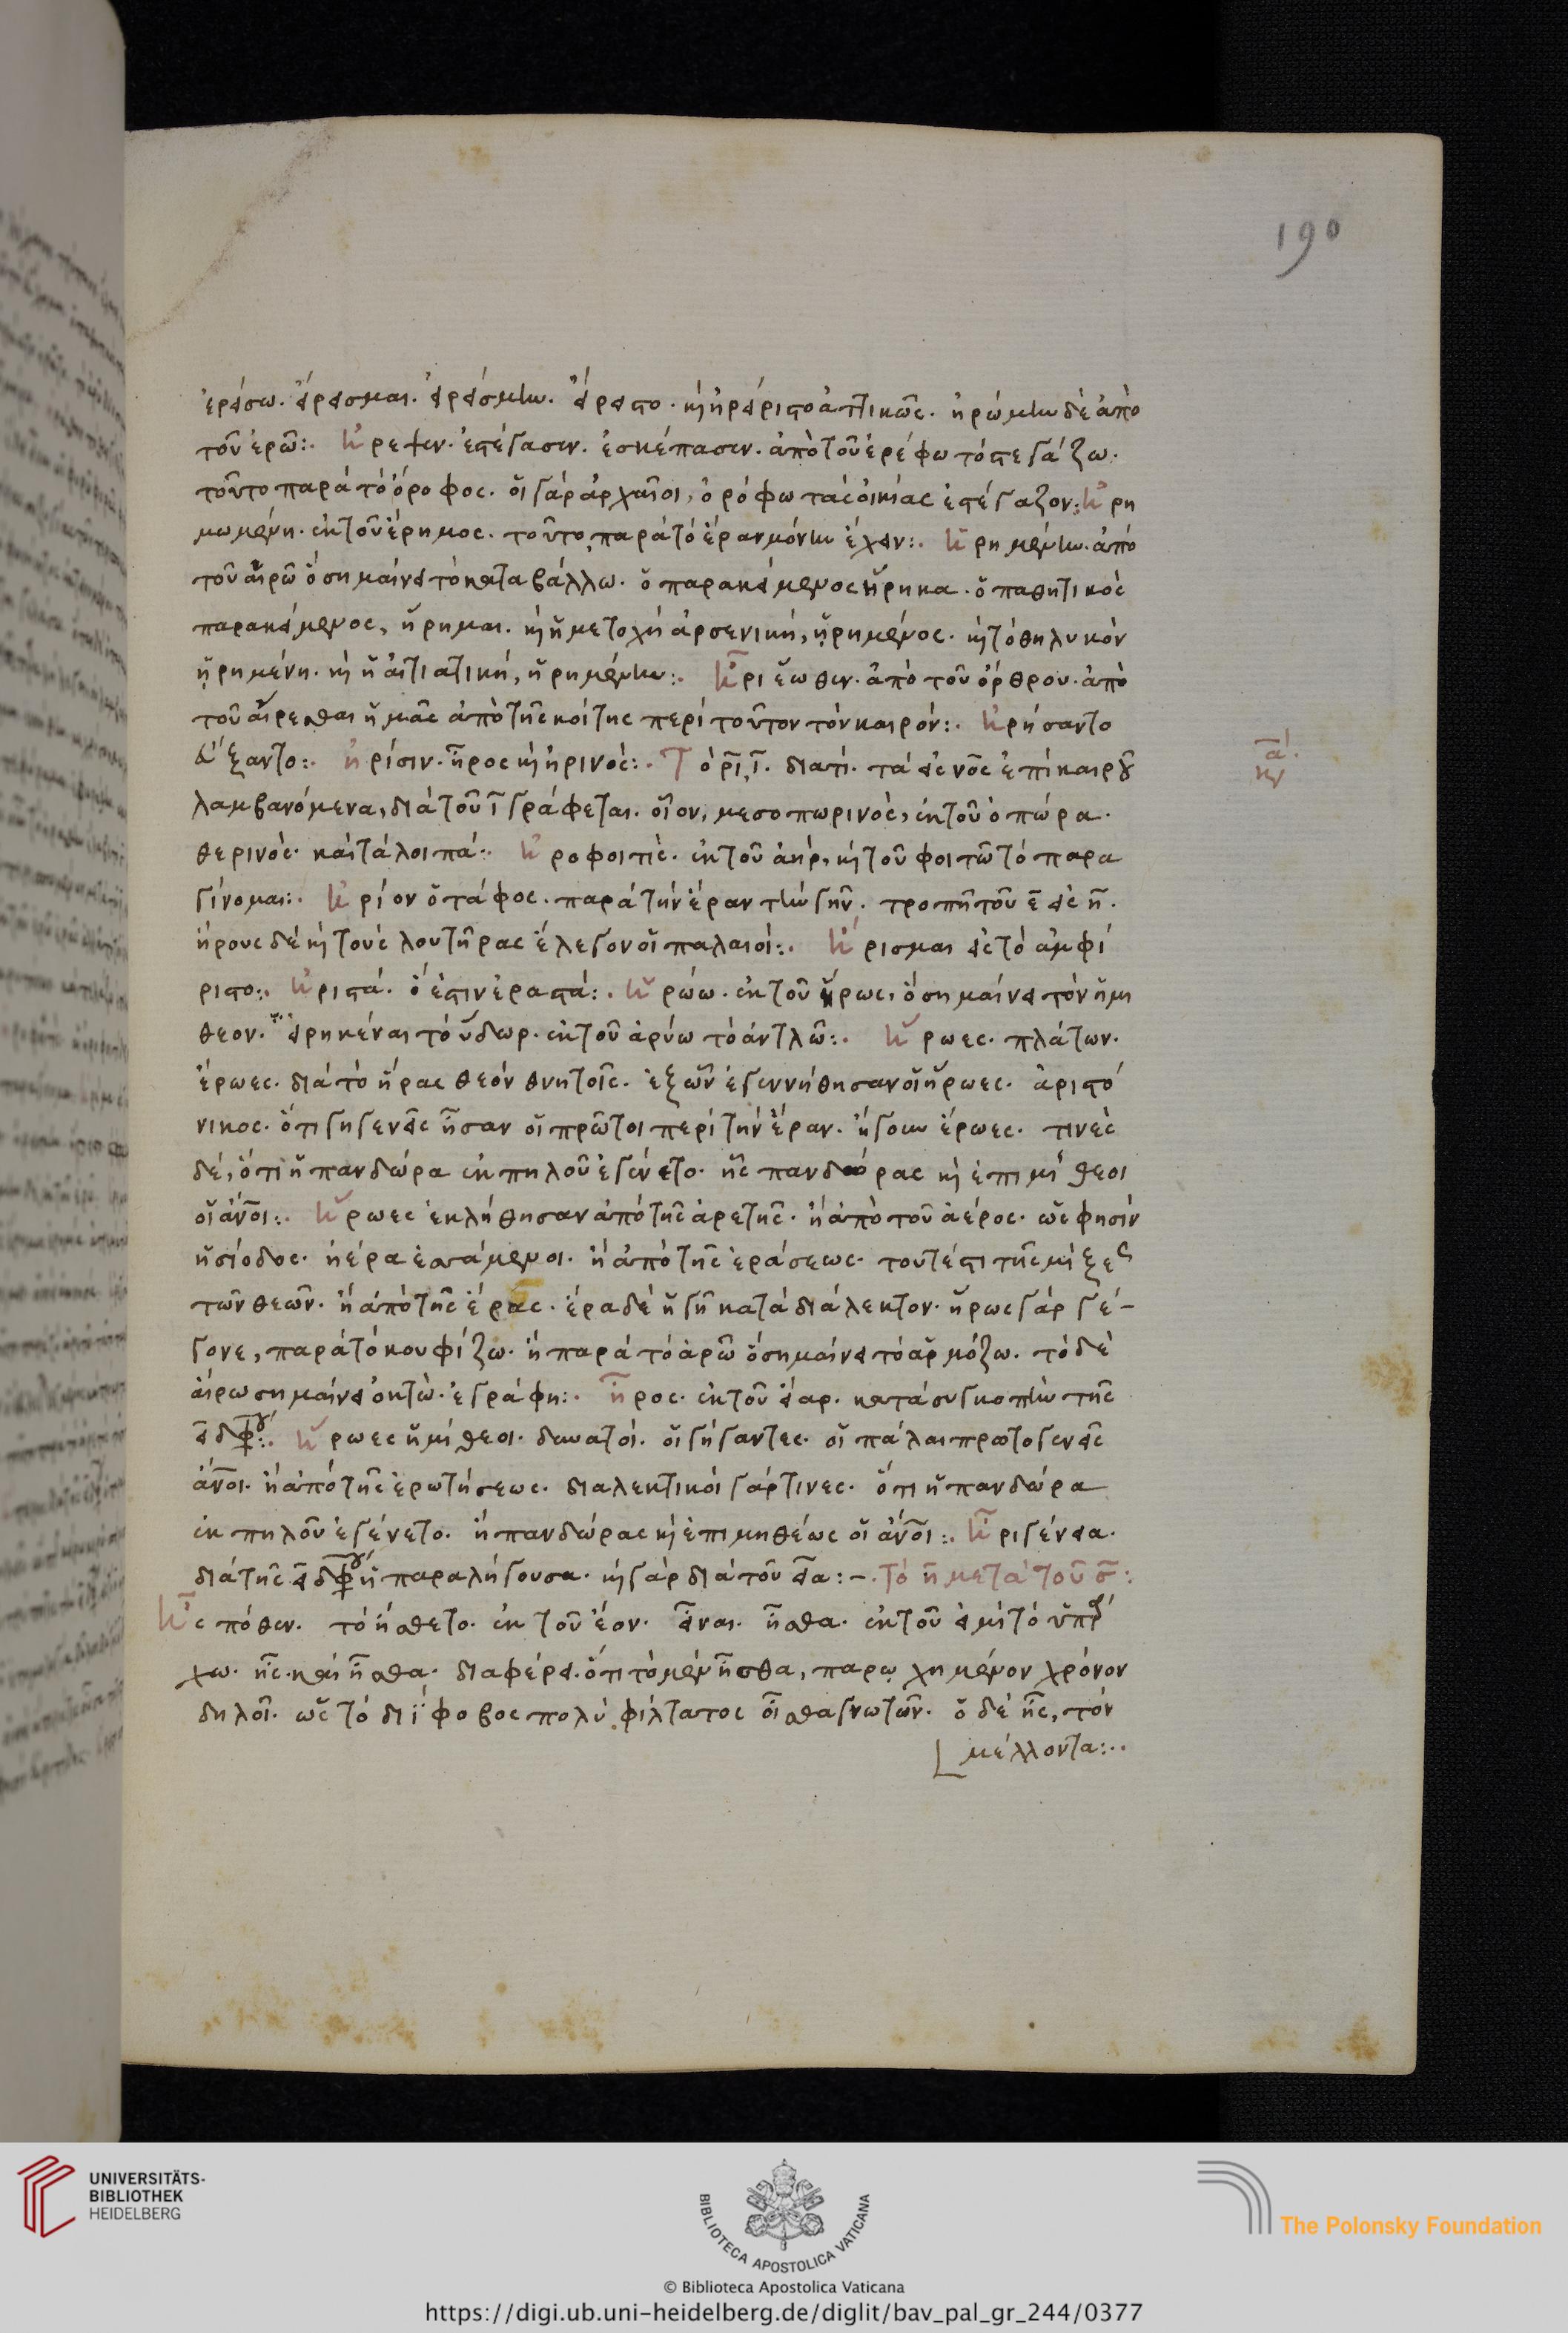 190
ἐράσω. ἔρασμαι. ἐράσμην. ἔραστο. καὶ ἠρήριστο ἀττικῶς. ἠρώμην δὲ ἀπὸ
τοῦ ἐρῶ:. ἤρεψεν. ἐστέγασεν. ἐσκέπασεν. ἀπὸ τοῦ ἐρέφω τὸ στεγάζω.
τοῦτο παρὰ τὸ ὄροφος. οἱ γὰρ ἀρχαῖοι, ὀρόφω τὰς οἰκίας ἐστέγαζον:. ἠρη
μωμένη. ἐκ τοῦ ἔρημος. τοῦτο, παρὰ τὸ ἔραν μόνην ἔχειν:. ἠρημένην. ἀπὸ
τοῦ αἱρῶ ὃ σημαίνει τὸ καταβάλλω. ὁ παρακείμενος ἥρηκα. ὁ παθητικὸς
παρακείμενος, ἥρημαι. καὶ ἡ μετοχὴ ἀρσενικὴ, ᾑρημένος. καὶ τὸ θηλυκὸν
ᾑρημένη. καὶ ἡ αἰτιατικὴ, ᾑρημένην:. ἠριἕωθεν. ἀπὸ τοῦ ὄρθρου. ἀπὸ
τοῦ αἴρεσθαι ἡμᾶς ἀπὸ τῆς κοίτης περὶ τοῦτον τὸν καιρόν:. ἠρήσαντο
εὔξαντο:. ἠρίσιν. ἦρος καὶ ἠρινὸς:. Τὸ ρῑ, ῑ. διατί. τὰ εἰς νος ἐπὶ καιροῦ
ᾱ.
κν
λαμβανόμενα, διὰ τοῦ ῑ γράφεται. οἷον, μεσοπωρινὸς, ἐκ τοῦ ὀπώρα.
θερινὸς. καὶ τὰ λοιπά:. ἠροφοιτις. ἐκ τοῦ ἀὴρ, καὶ τοῦ φοιτῶ τὸ παρα
γίνομαι:. ἠρίον ὁ τάφος. παρὰ τὴν ἔραν τὴν γῆν. τροπῇ τοῦ ε̄ εἰς η̄.
ἤρους δὲ καὶ τοὺς λουτῆρας ἔλεγον οἱ παλαιοί:. ἤρισμαι εἰς τὸ ἀμφί
ριστο:. ἠριστά. ὅ ἐστιν ἐραστά:. ἡρώω. ἐκ τοῦ ἥρως, ὃ σημαίνει τὸν ἡμί
θεον. εἰρηκέναι τὸ ὕδωρ. ἐκ τοῦ ἀρύω τὸ ἀντλῶ:. ἥρωες. πλάτων.
ἔρωες. διὰ τὸ ἥρας θεὸν θνητοῖς. ἐξ ὧν ἐγεννήθησαν οἱ ἥρωες. ἀριστό
νικος. ὅτι γηγενεῖς ἦσαν οἱ πρῶτοι περὶ τὴν ἔραν. ἤγουν ἔρωες. τινὲς
δὲ, ὅτι ἡ πανδώρα ἐκ πηλοῦ ἐγένετο. ἧς πανδώρας καὶ ἐπιμηθεοι
οἱ ἄνοι:. ἥρωες ἐκλήθησαν ἀπὸ τῆς ἀρετῆς. ἢ ἀπὸ τοῦ ἀέρος. ὥς φησὶν
ἡσίοδος. ἠέρα ἑσσάμενοι. ἢ ἀπὸ τῆς ἐράσεως. τουτέστι τῆς μίξε
τῶν θεῶν. ἢ ἀπὸ τῆς ἔρας. ἔρα δὲ ἡ γῆ κατὰ διάλεκτον. ἥρως γὰρ γέ-
γονε, παρὰ τὸ κουφίζω. ἢ παρὰ τὸ ἀρῶ ὃ σημαίνει τὸ ἁρμόζω. τὸ δὲ
αἴρω σημαίνει ὀκτὼ. ἐγράφη:. ἦρος. ἐκ τοῦ ἔαρ. κατὰ συγκοπὴν τῆς
ει διφ:. ἥρωες ἡμίθεοι. δυνατοί. οἱ γήγαντες. οἱ πάλαι πρωτογενεῖς
ἄνοι. ἢ ἀπὸ τῆς ἐρωτήσεως. διαλεκτικοὶ γάρ τινες. ὅτι ἡ πανδώρα
ἐκ πηλοῦ ἐγένετο. ἢ πανδώρας καὶ ἐπιμηθέως οἱ ἄνοι:. ἠριγένεια.
διὰ τῆς ει διφ ἡ παραλήγουσα. καὶ γὰρ διὰ τοῦ εια:-. Τὸ η̄ μετὰ τοῦ σ̄:
ἦς πόθεν. τὸ ἤσθετο. ἐκ τοῦ ἔον. εἶναι. ἦσθα. ἐκ τοῦ εἰμὶ τὸ ὑπάρ
χω. ἦς. καὶ ἦσθα. διαφέρει. ὅτι τὸ μὲν ἦσθα, παρῳχημένον χρόνον
δηλοῖ. ὡς τὸ δηΐφοβος πολὺ φίλτατος οἶσθα γνωτῶν. ὁ δὲ ἦς, τὸν
μέλλοντα:..
UNIVERSITÄTS-
BIBLIOTHEK
HEIDELBERG
BIBLIOTECA APOSTOLICA VATICANA
The Polonsky Foundation
© Biblioteca Apostolica Vaticana
https://digi.ub.uni-heidelberg.de/diglit/bav_pal_gr_244/0377